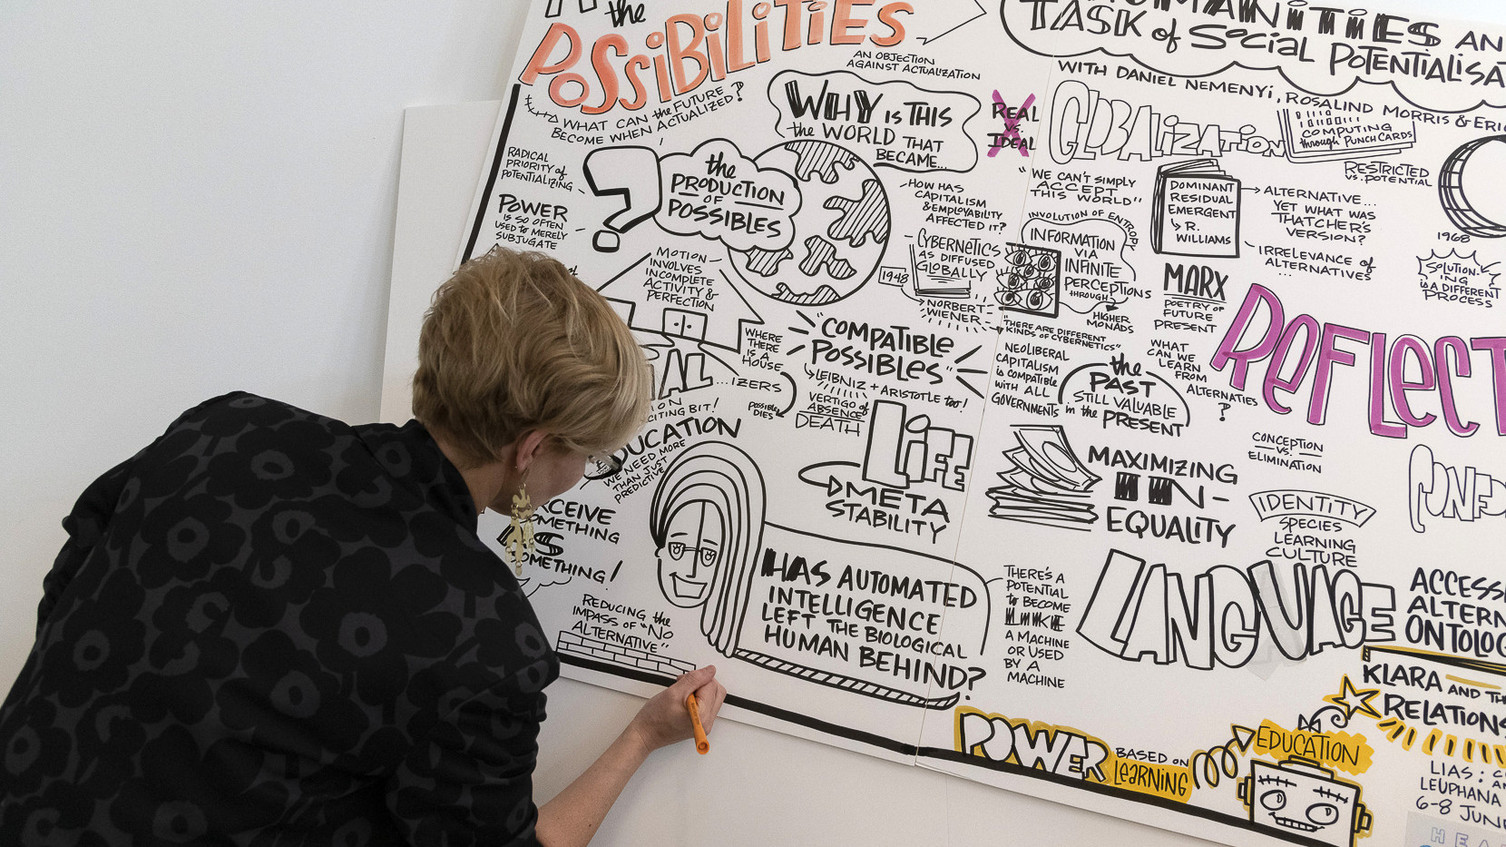 the
POSSIBILITIES
AN OBJECTION
AGAINST ACTUALIZATION
WHAT CAN the FUTURE
BECOME WHEN ACTUALIZED?
WHY IS THIS
the WORLD THAT
BECAME...
REAL
vs.
IDEAL
RADICAL
PRIORITY of
POTENTIALIZING
POWER
IS SO OFTEN
USED to MERELY
SUBJUGATE
?
the
PRODUCTION
OF
POSSIBLES
HOW HAS
CAPITALISM
& EMPLOYABILITY
AFFECTED IT?
CYBERNETICS
AS DIFFUSED
GLOBALLY
1948
NORBERT
WIENER
MOTION
INVOLVES
INCOMPLETE
ACTIVITY &
PERFECTION
WHERE
THERE
IS A
HOUSE
...IZERS
POSSIBLE
DIES
"COMPATIBLE
POSSIBLES"
LEIBNIZ + ARISTOTLE too!
VERTIGO of
ABSENCE
DEATH
LIFE
META
STABILITY
CITING BIT!
EDUCATION
WE NEED MORE
THAN JUST
PREDICTIVE
CEIVE
SOMETHING
AS
SOMETHING!
REDUCING the
IMPASS OF "NO
ALTERNATIVE"
HAS AUTOMATED
INTELLIGENCE
LEFT THE BIOLOGICAL
HUMAN BEHIND?
HUMANITIES AN
TASK of SOCIAL POTENTIALISA
WITH DANIEL NEMENYI, ROSALIND MORRIS & ERI
GLOBALIZATION
COMPUTING
through PUNCH CARDS
RESTRICTED
vs. POTENTIAL
"WE CAN'T SIMPLY
ACCEPT
THIS WORLD"
DOMINANT
RESIDUAL
EMERGENT
R.
WILLIAMS
ALTERNATIVE...
YET WHAT WAS
THATCHER'S
VERSION?
IRRELEVANCE of
ALTERNATIVES
...
1968
INVOLUTION OF ENTROPY
INFORMATION
VIA
INFINITE
PERCEPTIONS
THROUGH
HIGHER
MONADS
"THERE ARE DIFFERENT
KINDS OF CYBERNETICS"
MARX
POETRY OF
FUTURE
PRESENT
SOLUTION-
ING
IS A DIFFERENT
PROCESS
REFLECT
NEOLIBERAL
CAPITALISM
is COMPATIBLE
WITH ALL
GOVERNMENTS
the
PAST
STILL VALUABLE
in the PRESENT
WHAT
CAN WE
LEARN
FROM
ALTERNATIVES
?
MAXIMIZING
UN-
EQUALITY
CONCEPTION
vs.
ELIMINATION
IDENTITY
SPECIES
LEARNING
CULTURE
THERE'S A
POTENTIAL
to BECOME
LIKE
A MACHINE
OR USED
BY A
MACHINE
LANGUAGE
ACCESS
ALTERN
ONTOLOG
KLARA AND TH
RELATIONS
POWER
BASED ON
LEARNING
EDUCATION
LIAS: C
LEUPHANA
6-8 JUN